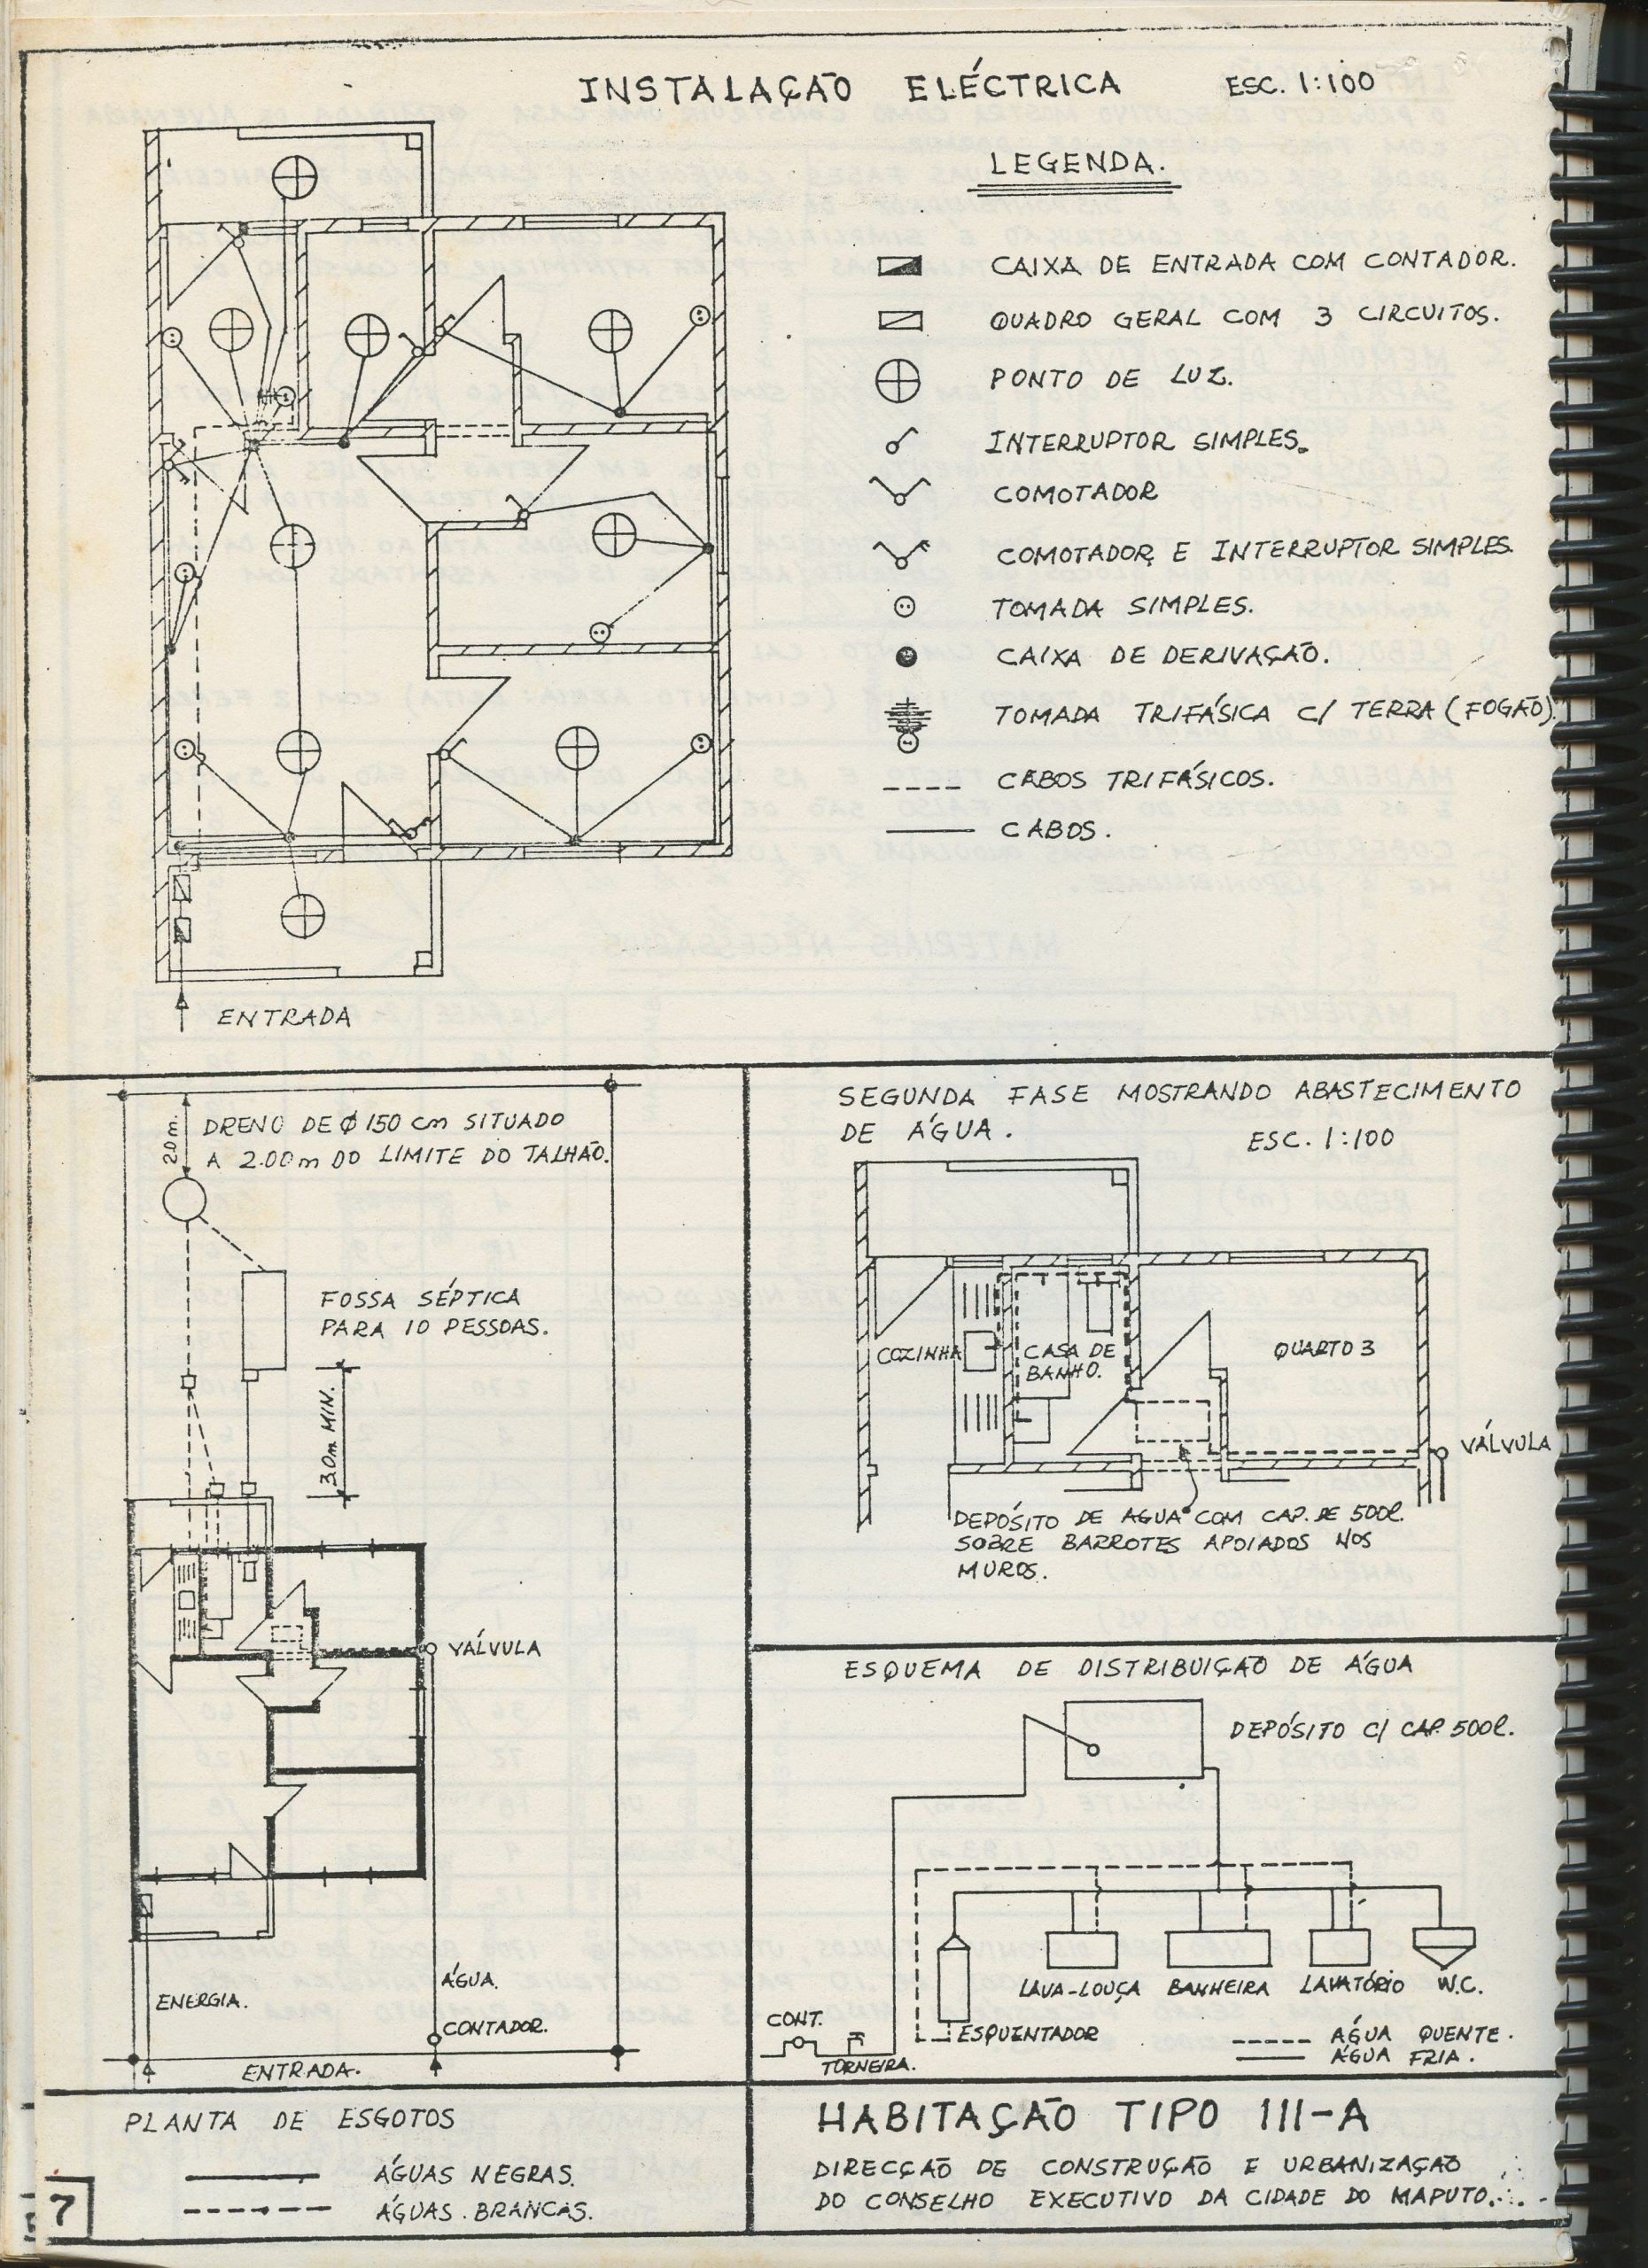 INSTALAÇÃO ELÉCTRICA ESC. 1:100
LEGENDA.
CAIXA DE ENTRADA COM CONTADOR.
QUADRO GERAL COM 3 CIRCUITOS.
PONTO DE LUZ.
INTERRUPTOR SIMPLES.
COMOTADOR
COMOTADOR E INTERRUPTOR SIMPLES.
TOMADA SIMPLES.
CAIXA DE DERIVAÇÃO.
TOMADA TRIFÁSICA C/ TERRA (FOGÃO).
CABOS TRIFÁSICOS.
CABOS.
ENTRADA
2.0m.
DRENO DE Ø 150 cm SITUADO
A 2.00m DO LIMITE DO TALHÃO.
FOSSA SÉPTICA
PARA 10 PESSOAS.
3.0m MIN.
VÁLVULA
ENERGIA.
ÁGUA.
CONTADOR.
ENTRADA.
SEGUNDA FASE MOSTRANDO ABASTECIMENTO
DE ÁGUA.
ESC. 1:100
COZINHA
CASA DE
BANHO.
QUARTO 3
VÁLVULA
DEPÓSITO DE AGUA COM CAP. DE 500l.
SOBRE BARROTES APOIADOS NOS
MUROS.
ESQUEMA DE DISTRIBUIÇÃO DE ÁGUA
DEPÓSITO C/ CAP. 500l.
LAVA-LOUÇA BANHEIRA LAVATÓRIO W.C.
CONT.
ESQUENTADOR
TORNEIRA.
ÁGUA QUENTE.
ÁGUA FRIA.
PLANTA DE ESGOTOS
ÁGUAS NEGRAS.
ÁGUAS BRANCAS.
HABITAÇÃO TIPO III-A
DIRECÇÃO DE CONSTRUÇÃO E URBANIZAÇÃO
DO CONSELHO EXECUTIVO DA CIDADE DO MAPUTO.
7